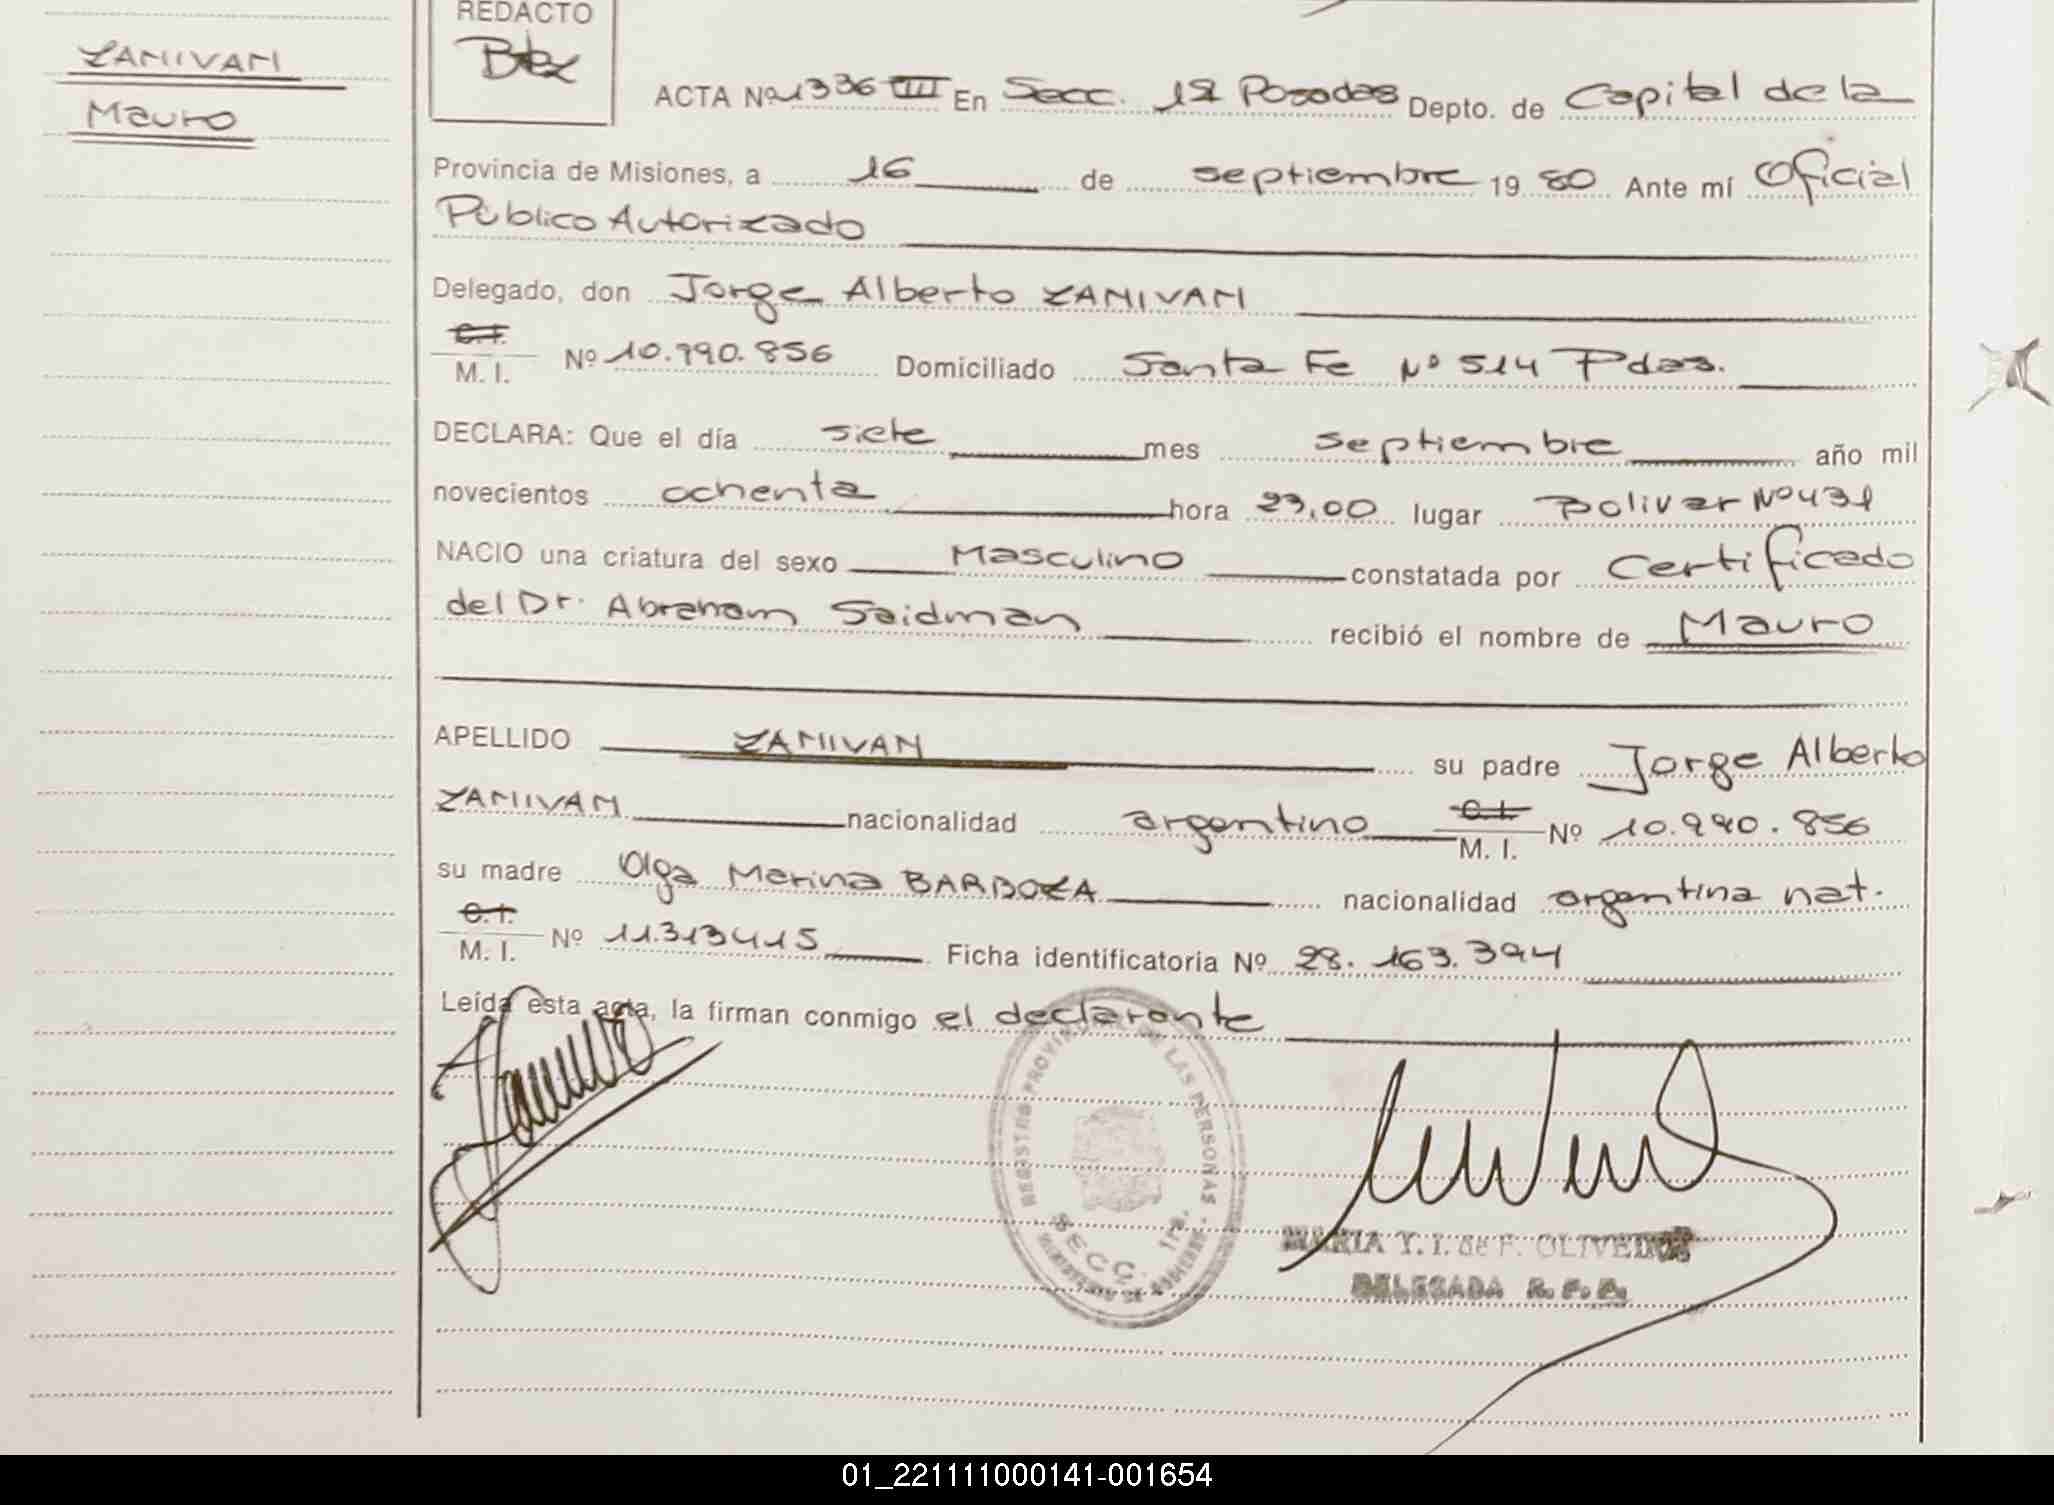 REDACTO
ZANIVAN
Mauro
ACTA Nº 1336 III En Secc. 1ª Posadas Depto. de Capital de la
Provincia de Misiones, a 16 de septiembre 19 80 Ante mí Oficial
Público Autorizado
Delegado, don Jorge Alberto ZANIVAN
C.I.
M. I. Nº 10.990.856 Domiciliado Santa Fe Nº 514 Pdas.
DECLARA: Que el día siete mes septiembre año mil
novecientos ochenta hora 23,00 lugar Bolivar Nº 431
NACIO una criatura del sexo Masculino constatada por Certificado
del Dr. Abraham Saidman recibió el nombre de Mauro
APELLIDO ZANIVAN su padre Jorge Alberto
ZANIVAN nacionalidad argentino C.I. M. I. Nº 10.990.856
su madre Olga Marina BARBOZA nacionalidad argentina nat.
C.I.
M. I. Nº 11.313415 Ficha identificatoria Nº 28.163.394
Leída esta acta, la firman conmigo el declarante
REGISTRO PROVINCIAL DE LAS PERSONAS
SECC. 1ra.
MARIA Y. I. de F. OLIVEIRA
DELEGADA R. P. P.
01_221111000141-001654